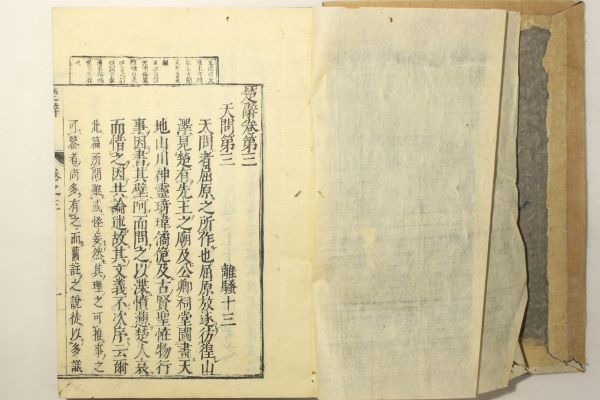 楚辭卷第三
天問第三 離騷十三
天問者屈原之所作也屈原放逐彷徨山
澤見楚有先王之廟及公卿祠堂圖畫天
地山川神靈琦瑋僪佹及古賢聖怪物行
事因書其壁呵而問之以渫憤懣楚人哀
而惜之因共論述故其文義不次序云爾
此篇所問雖或怪妄然其理之可推事之
可鑒者尚多有之而舊註之說徒以多識
楚辭
卷之三